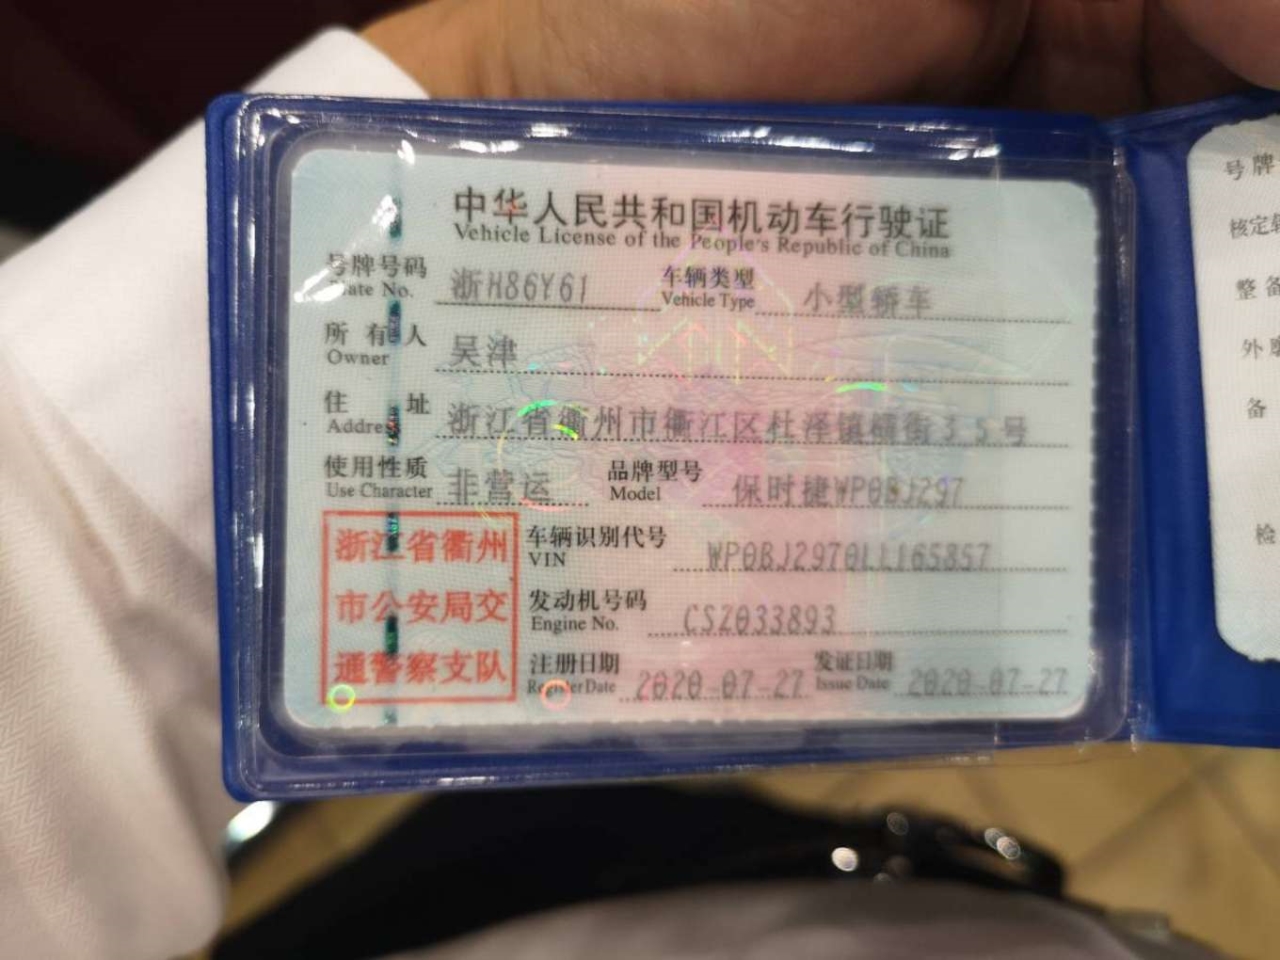 中华人民共和国机动车行驶证
Vehicle License of the People's Republic of China
号牌号码 浙H86Y61 车辆类型 小型轿车
Plate No. Vehicle Type
所有人 吴津
Owner
住址 浙江省衢州市衢江区杜泽镇横街35号
Address
使用性质 非营运 品牌型号 保时捷WP0BJ297
Use Character Model
浙江省衢州
市公安局交
通警察支队
车辆识别代号 WP0BJ2970LL165857
VIN
发动机号码 CSZ033893
Engine No.
注册日期 2020-07-27 发证日期 2020-07-27
Register Date Issue Date
号牌
核定
整备
外
备
检